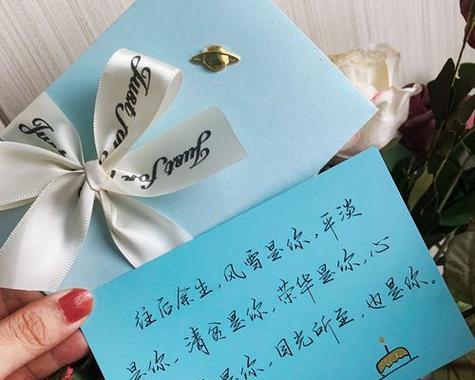 Just for
Just for
往后余生,风雪是你,平淡
是你,清贫是你,荣华是你,心
是你,目光所至,也是你。